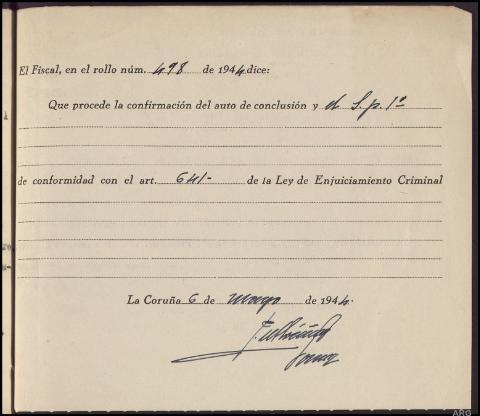 El Fiscal, en el rollo núm. 498 de 1944 dice:
Que procede la confirmación del auto de conclusión y el S. p. 1º
de conformidad con el art. 641- de la Ley de Enjuiciamiento Criminal
La Coruña 6 de mayo de 1944.
ARG